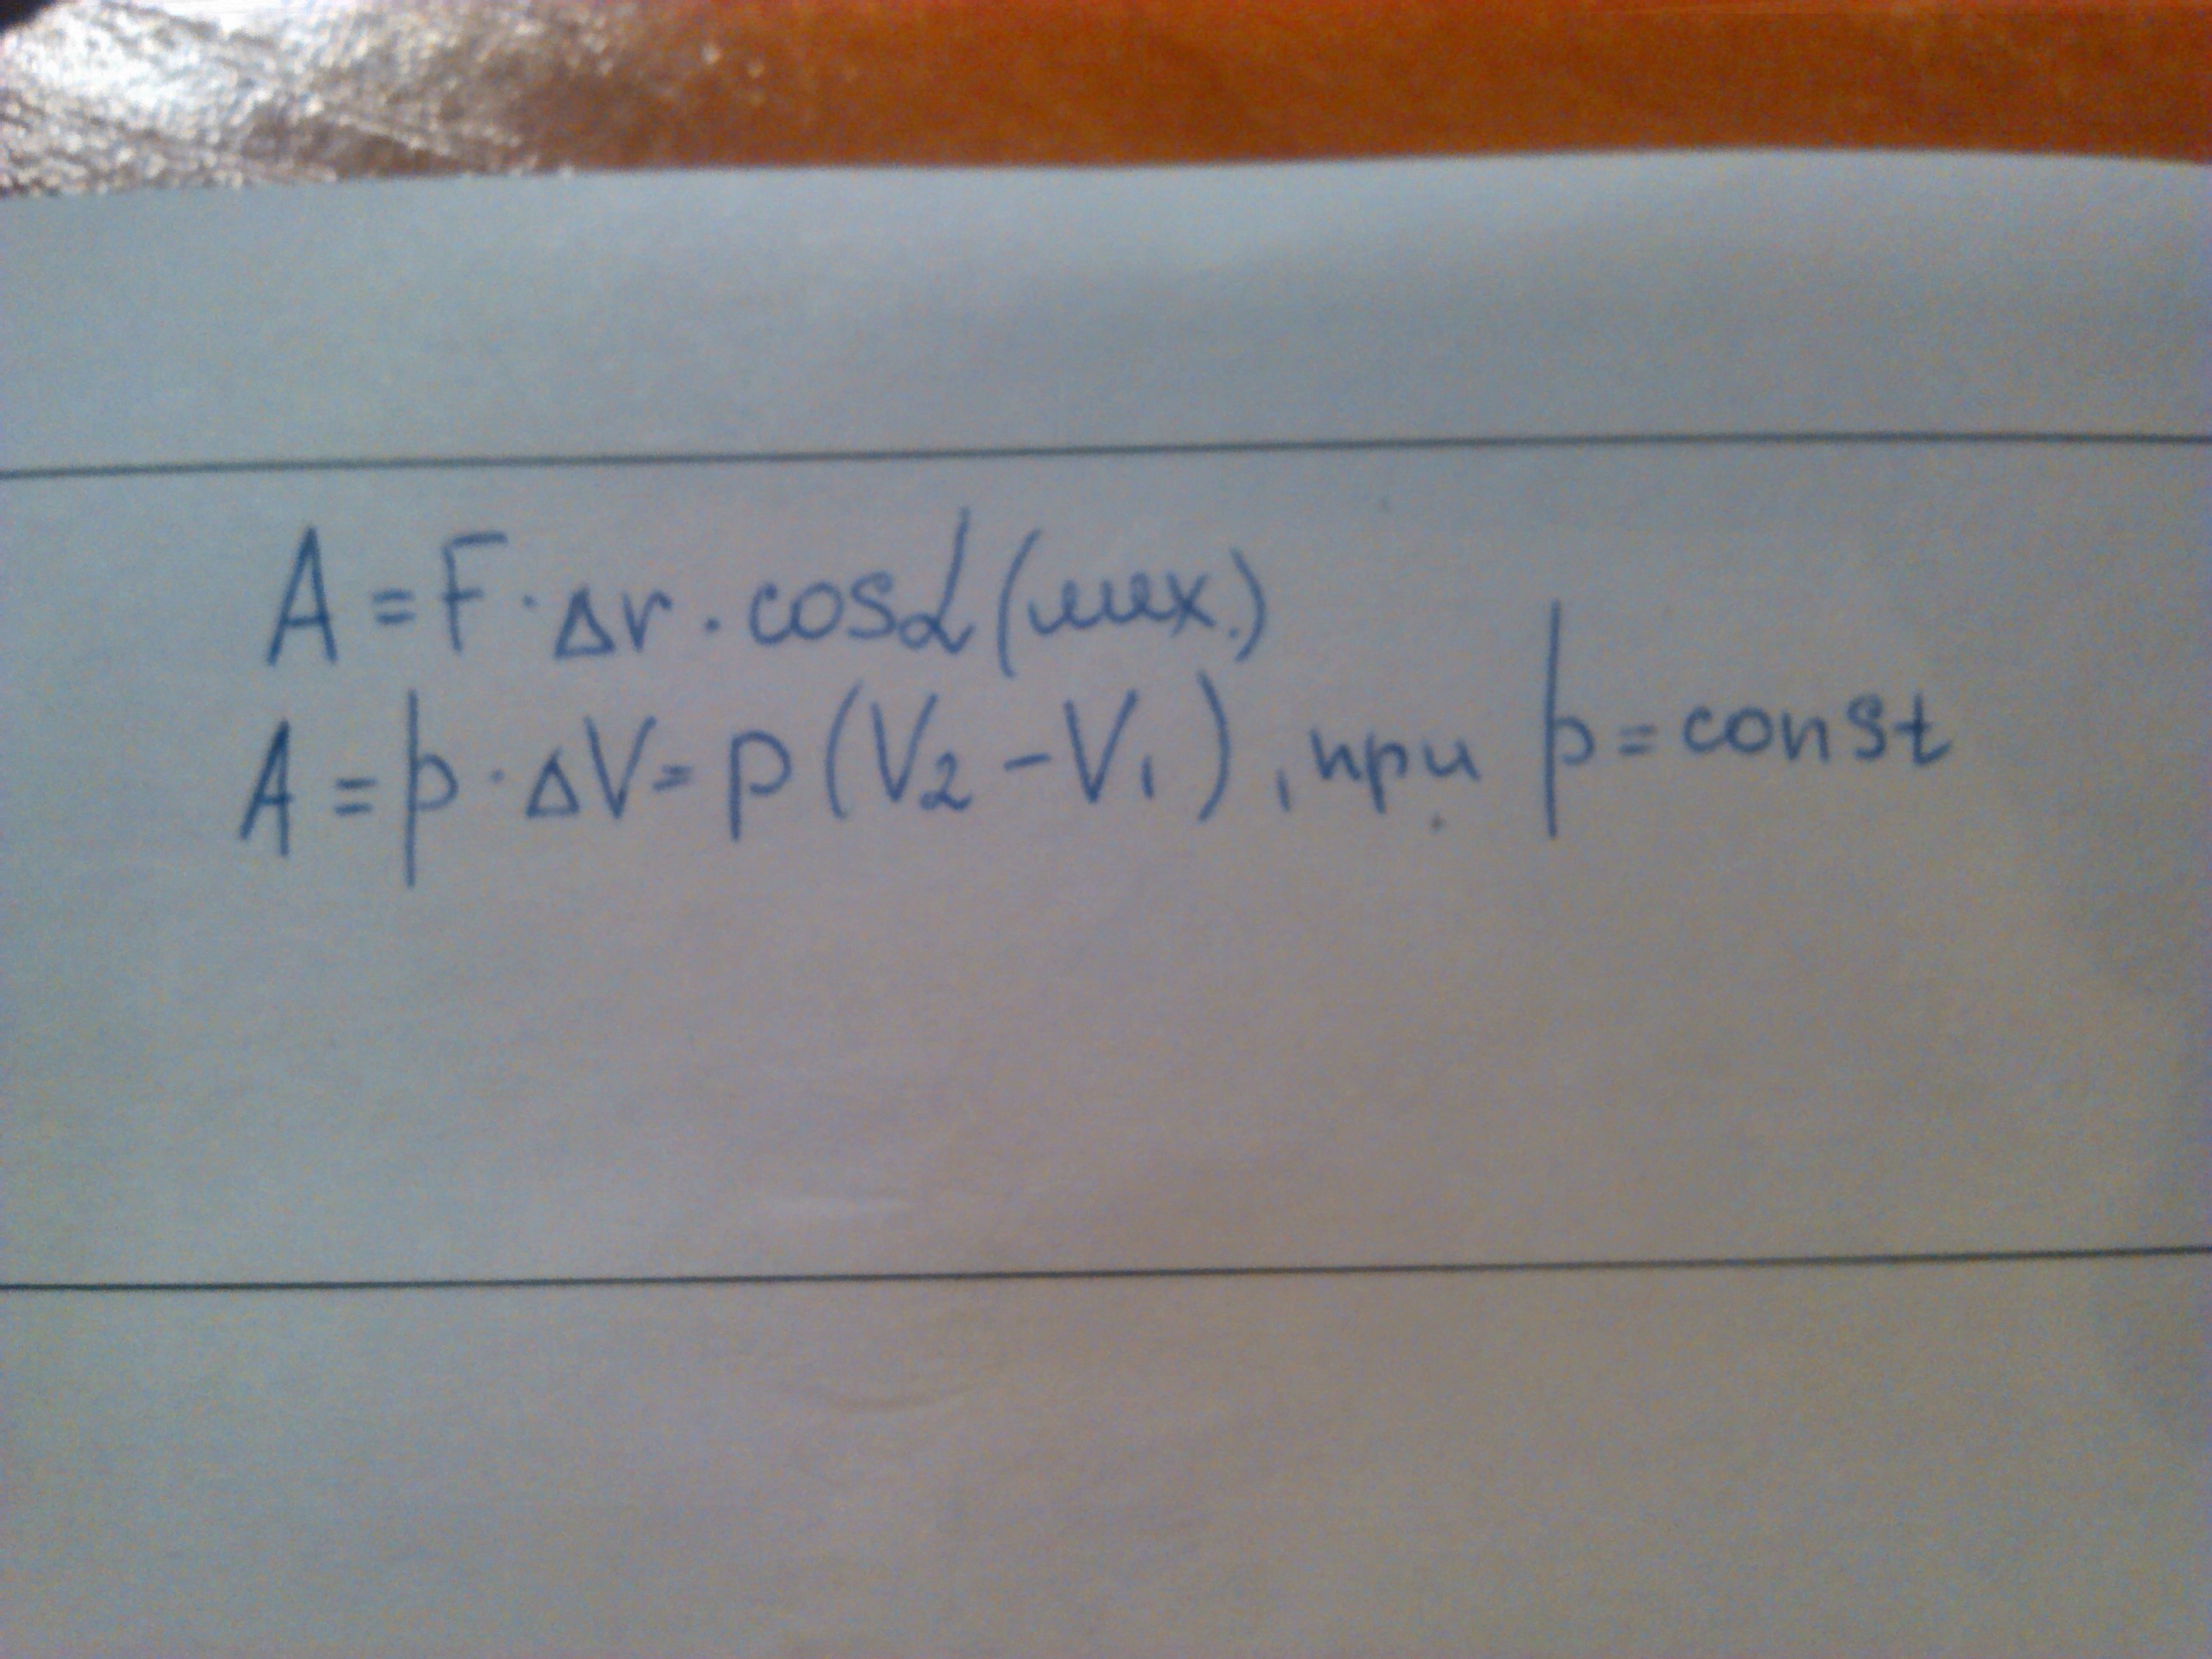 A = F · Δr · cosα (мех.)
A = p · ΔV = p (V₂ - V₁), при p = const